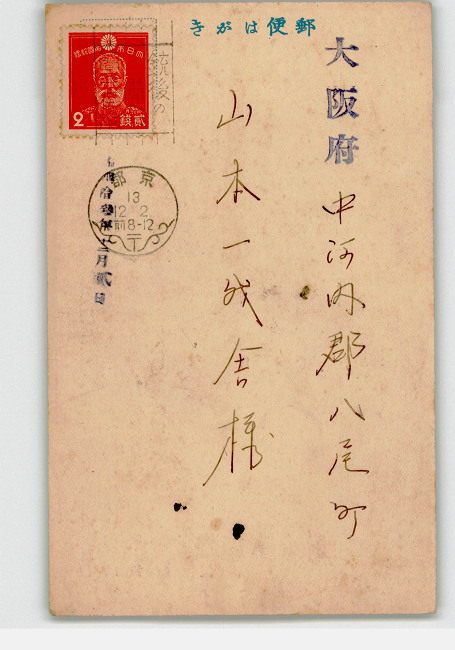 郵便はがき
大阪府
中河内郡八尾町
山本一成舎様
大日本帝國郵便
2
貳錢
京都
13
12.2
前8-12
〒
拾参年十二月貳日